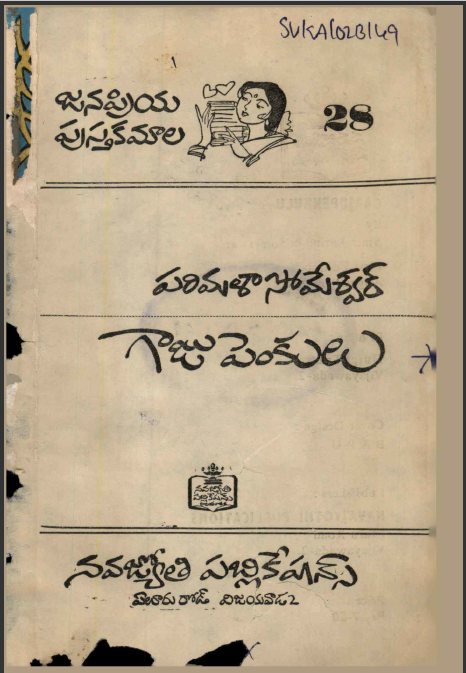 SVKAL02B149
జనప్రియ
పుస్తకమాల
28
పరిమళా సోమేశ్వర్
గాజు పెంకులు
నవజ్యోతి
పబ్లికేషన్స్
నవజ్యోతి పబ్లికేషన్స్
ఏలూరు రోడ్ విజయవాడ 2